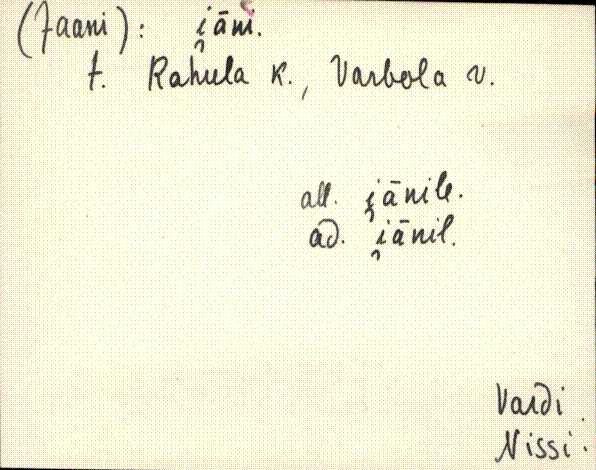 (Jaani): i̯āni.
t. Rahula k., Varbola v.
all. i̯ānile.
ad. i̯ānil.
Vardi
Nissi.